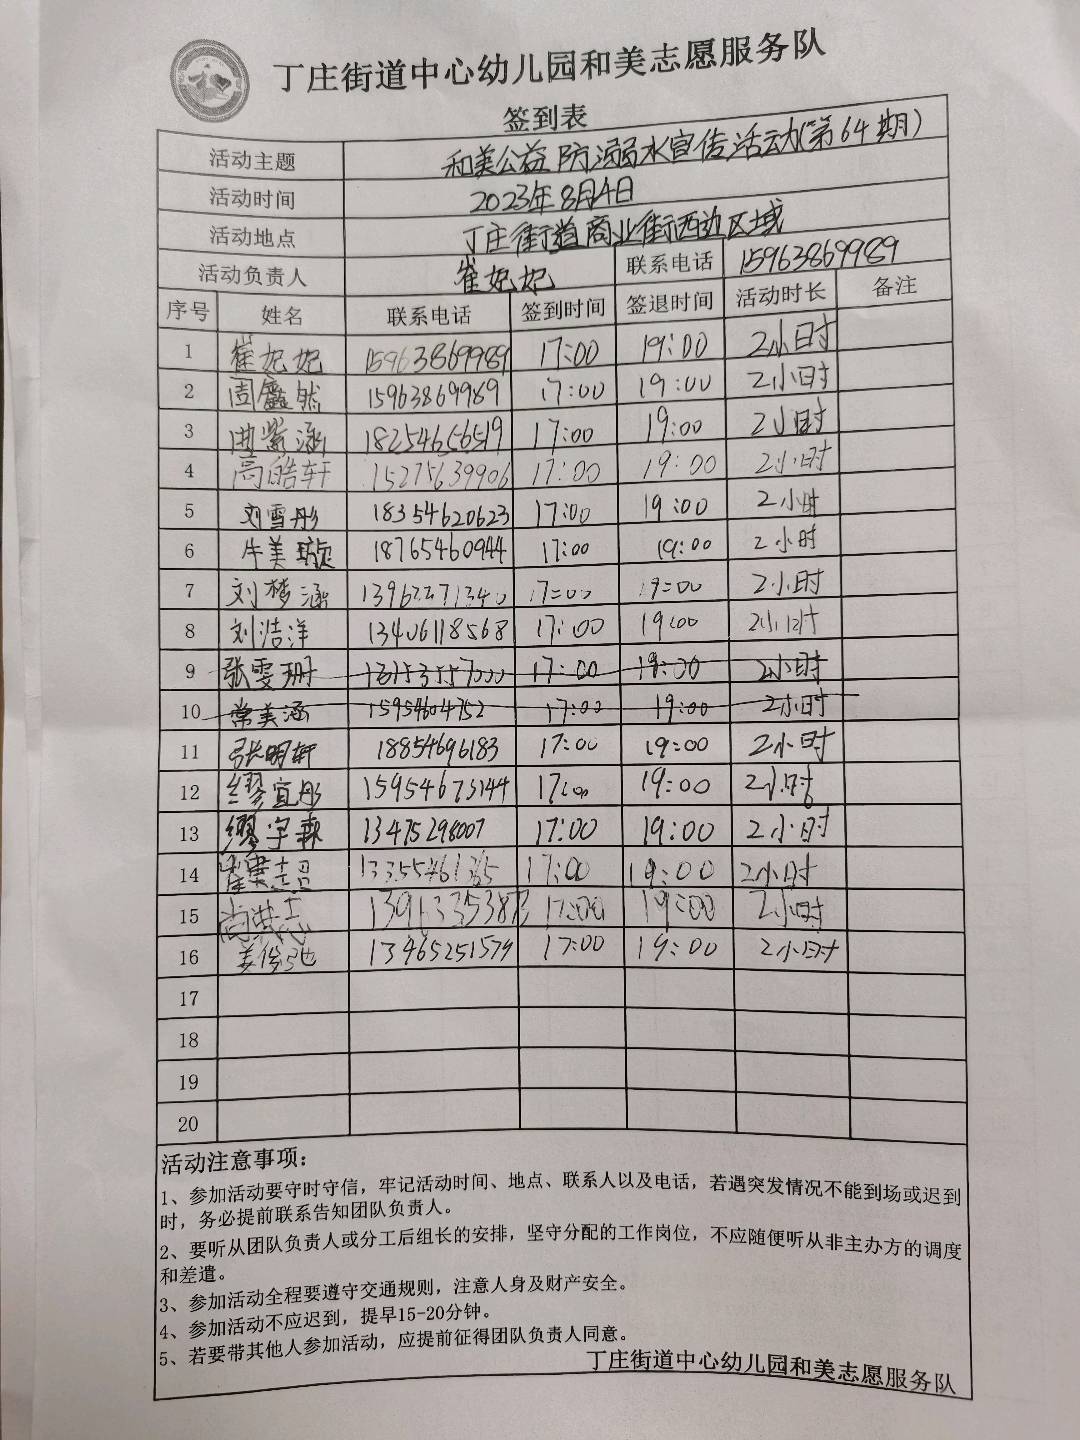 丁庄街道中心幼儿园和美志愿服务队
签到表
活动主题 和美公益防溺水宣传活动(第64期)
活动时间 2023年8月4日
活动地点 丁庄街道商业街西边区域
活动负责人 崔妃妃 联系电话 15963869989
序号 姓名 联系电话 签到时间 签退时间 活动时长 备注
1 崔妃妃 15963869989 17:00 19:00 2小时
2 周鑫然 15963869989 17:00 19:00 2小时
3 曲紫涵 18254656519 17:00 19:00 2小时
4 高皓轩 15275639906 17:00 19:00 2小时
5 刘雪彤 18354620623 17:00 19:00 2小时
6 牛美璇 18765460944 17:00 19:00 2小时
7 刘梦涵 13962271340 17:00 19:00 2小时
8 刘洁洋 13406118568 17:00 19:00 2小时
9 张雯珊 17:00 19:00 2小时
10 常美涵 15954604752 17:00 19:00 2小时
11 张明轩 18854696183 17:00 19:00 2小时
12 缪宜彤 15954673144 17:00 19:00 2小时
13 缪宇森 13475298007 17:00 19:00 2小时
14 17:00 19:00 2小时
15 17:00 19:00 2小时
16 姜俊弛 13465251579 17:00 19:00 2小时
17
18
19
20
活动注意事项：
1、参加活动要守时守信，牢记活动时间、地点、联系人以及电话，若遇突发情况不能到场或迟到
时，务必提前联系告知团队负责人。
2、要听从团队负责人或分工后组长的安排，坚守分配的工作岗位，不应随便听从非主办方的调度
和差遣。
3、参加活动全程要遵守交通规则，注意人身及财产安全。
4、参加活动不应迟到，提早15-20分钟。
5、若要带其他人参加活动，应提前征得团队负责人同意。
丁庄街道中心幼儿园和美志愿服务队